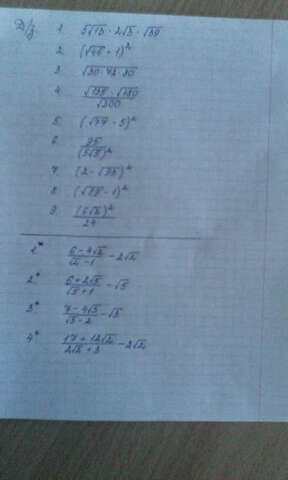 Д/з 1. 5√13 · 2√3 · √39
2. (√48 + 1)²
3. √30 · 72 · 20
4. √138 · √150 / √300
5. (√37 - 5)²
6. 25 / (5√3)²
7. (2 - √35)²
8. (√73 - 1)²
9. (6√2)² / 24
1* (6 - 4√2) / (√2 - 1) - 2√2
2* (6 + 2√5) / (√5 + 1) - √5
3* (7 - 4√3) / (√3 - 2) - √3
4* (17 + 12√2) / (2√2 + 3) - 2√2